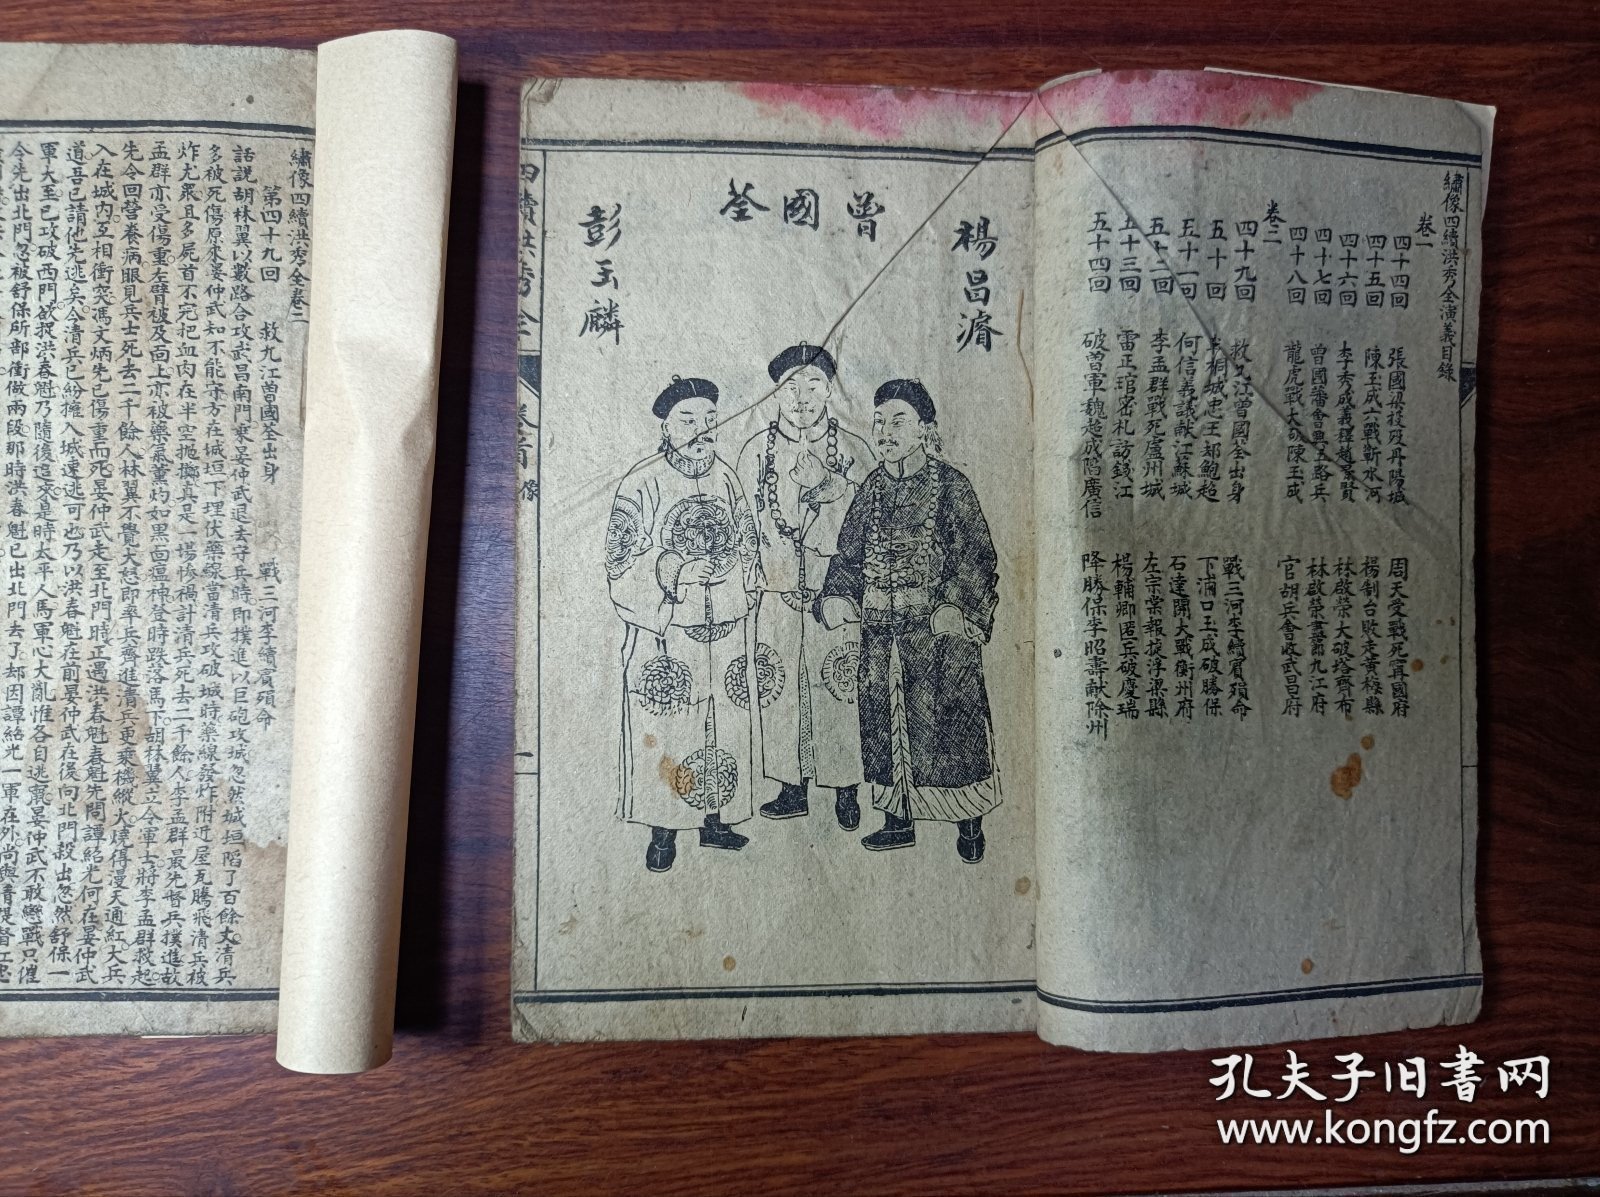 繡像四續洪秀全演義目錄
卷一
四十四回 張國樑投歿丹陽城 周天受戰死寗國府
四十五回 陳玉成六戰蘄水河 楊制台敗走黃梅縣
四十六回 李秀成義釋趙景賢 林啟榮大破塔齊布
四十七回 曾國藩會興五路兵 林啟榮盡節九江府
四十八回 龍虎戰大破陳玉成 官胡兵會收武昌府
卷二
四十九回 救九江曾國荃出身 戰三河李續賓殞命
五十回 桐城忠王却鮑超 下浦口玉成破勝保
五十一回 何信義議獻江蘇城 石達開大戰衡州府
五十二回 李孟群戰死廬州城 左宗棠報捷浮梁縣
五十三回 雷正琯密札訪錢江 楊輔卿匿兵破慶瑞
五十四回 破曾軍魏超成陷廣信 降勝保李昭壽献除州
楊昌濬
曾國荃
彭玉麟
四續洪秀全
卷首
像
一
繡像四續洪秀全卷二
第四十九回 救九江曾國荃出身 戰三河李續賓殞命
話説胡林翼以數路合攻武昌南門東晏仲武退去守兵時即撲進以巨砲攻城忽然城垣陷了百餘丈清兵
多被死傷原來晏仲武知不能守方在城垣下埋伏藥線當清兵攻破城時藥線發炸附近屋瓦騰飛清兵被
炸尤衆且多屍首不完把血肉在半空抛擲真是一場慘禍計清兵死去二千餘人李孟群最先督兵撲進故
孟群亦受傷重左臂被及面上亦被藥氣薰灼如黑面瘟神登時跌落馬下胡林翼立令軍士將李孟群救起
先令回營養病眼見兵士死去二千餘人林翼不覺大怒即率兵齊進清兵更乘機縱火燒得漫天通紅大兵
入在城内互相衝突馮文炳先已傷重而死晏仲武走至北門時正遇洪春魁春魁先問譚紹光何在晏仲武
道吾已請他先逃矣今清兵已紛擁入城速逃可也乃以洪春魁在前晏仲武在後向北門殺出忽然舒保一
軍大至已攻破西門欲捉洪春魁乃隨後追來是時太平人馬軍心大亂惟各自逃竄晏仲武不敢戀戰只催
令先出北門忽被舒保所部衝做兩段那時洪春魁已出北門去了却因譚紹光一軍在外尚與清提督江忠
孔夫子旧書网
www.kongfz.com